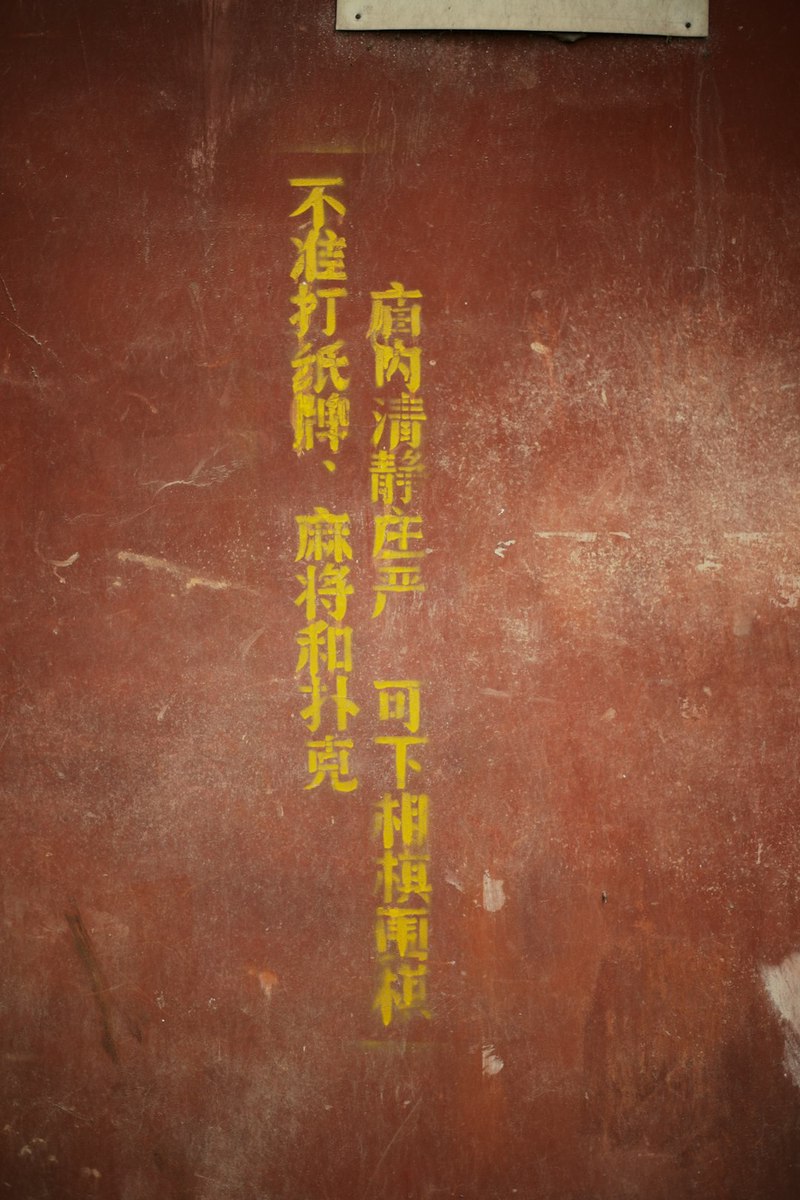 庙内清静庄严 可下相棋围棋
不准打纸牌、麻将和扑克